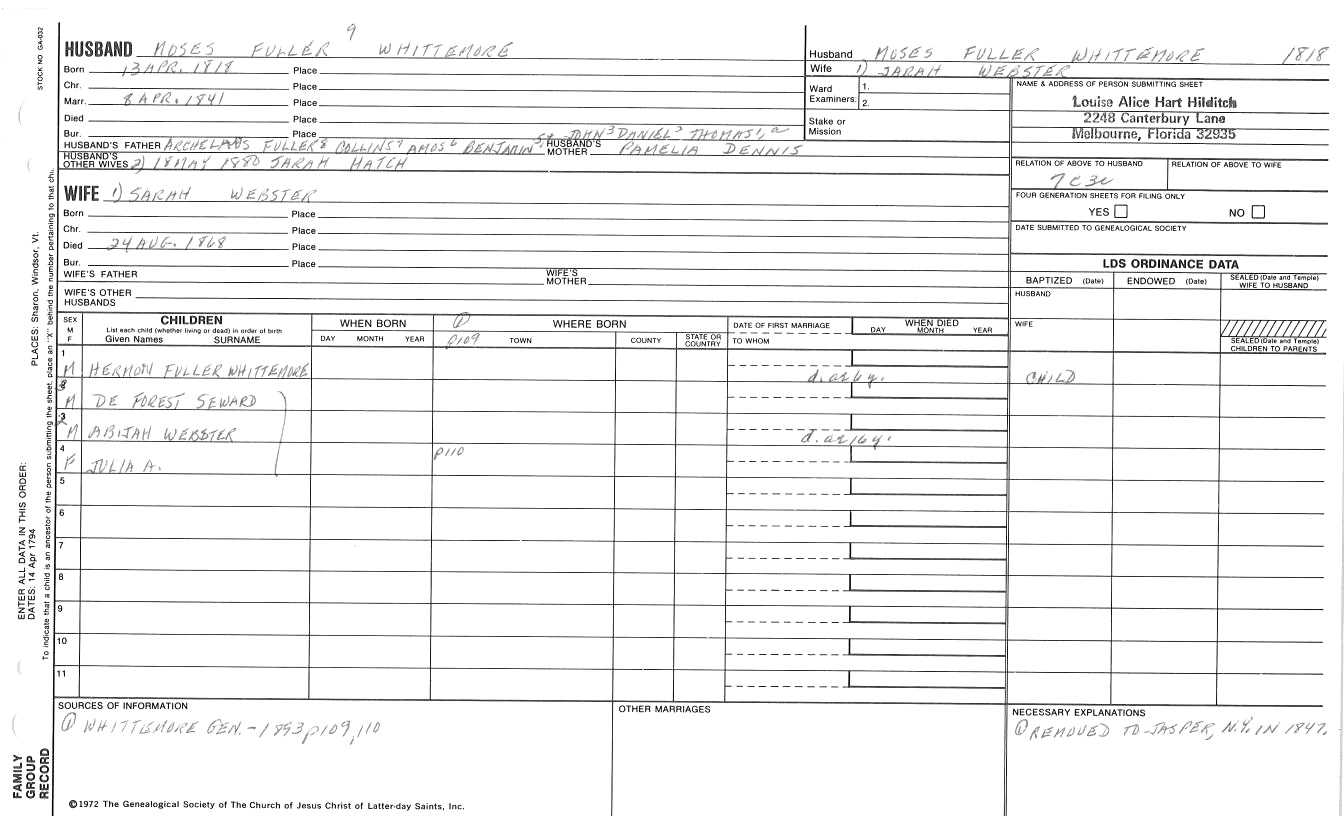 STOCK NO GA-032
9
HUSBAND MOSES FULLER WHITTEMORE
Born 13 APR. 1818 Place
Chr. Place
Marr. 8 APR. 1841 Place
Died Place
Bur. Place
5,4 JOHN3 DANIEL2 THOMAS1, a
HUSBAND'S FATHER ARCHELAUS FULLER8 COLLINS7 AMOS6 BENJAMIN HUSBAND'S MOTHER PAMELIA DENNIS
HUSBAND'S OTHER WIVES 2) 18 MAY 1880 SARAH HATCH
WIFE 1) SARAH WEBSTER
Born Place
Chr. Place
Died 24 AUG. 1868 Place
Bur. Place
WIFE'S FATHER WIFE'S MOTHER
WIFE'S OTHER HUSBANDS
Husband MOSES FULLER WHITTEMORE 1818
Wife 1) SARAH WEBSTER
Ward Examiners: 1.
2.
Stake or Mission
NAME & ADDRESS OF PERSON SUBMITTING SHEET
Louise Alice Hart Hilditch
2248 Canterbury Lane
Melbourne, Florida 32935
RELATION OF ABOVE TO HUSBAND RELATION OF ABOVE TO WIFE
7C3C
FOUR GENERATION SHEETS FOR FILING ONLY
YES NO
DATE SUBMITTED TO GENEALOGICAL SOCIETY
LDS ORDINANCE DATA
BAPTIZED (Date) ENDOWED (Date) SEALED (Date and Temple) WIFE TO HUSBAND
HUSBAND
WIFE
SEALED (Date and Temple) CHILDREN TO PARENTS
SEX M F
CHILDREN
List each child (whether living or dead) in order of birth
Given Names SURNAME
WHEN BORN
DAY MONTH YEAR
① WHERE BORN
p109 TOWN COUNTY STATE OR COUNTRY
DATE OF FIRST MARRIAGE
TO WHOM
WHEN DIED
DAY MONTH YEAR
1
M HERMON FULLER WHITTEMORE d. as 6 y. CHILD
M DE FOREST SEWARD
3
2
M ABIJAH WEBSTER d. as 16 y.
4 p110
F JULIA A.
5
6
7
8
9
10
11
SOURCES OF INFORMATION
① WHITTEMORE GEN. - 1893 p109, 110
OTHER MARRIAGES
NECESSARY EXPLANATIONS
① REMOVED TO JASPER, N.Y. IN 1847.
©1972 The Genealogical Society of The Church of Jesus Christ of Latter-day Saints, Inc.
FAMILY GROUP RECORD
ENTER ALL DATA IN THIS ORDER:
DATES: 14 Apr 1794
PLACES: Sharon, Windsor, Vt.
To indicate that a child is an ancestor of the person submitting the sheet, place an "X" behind the number pertaining to that chi.